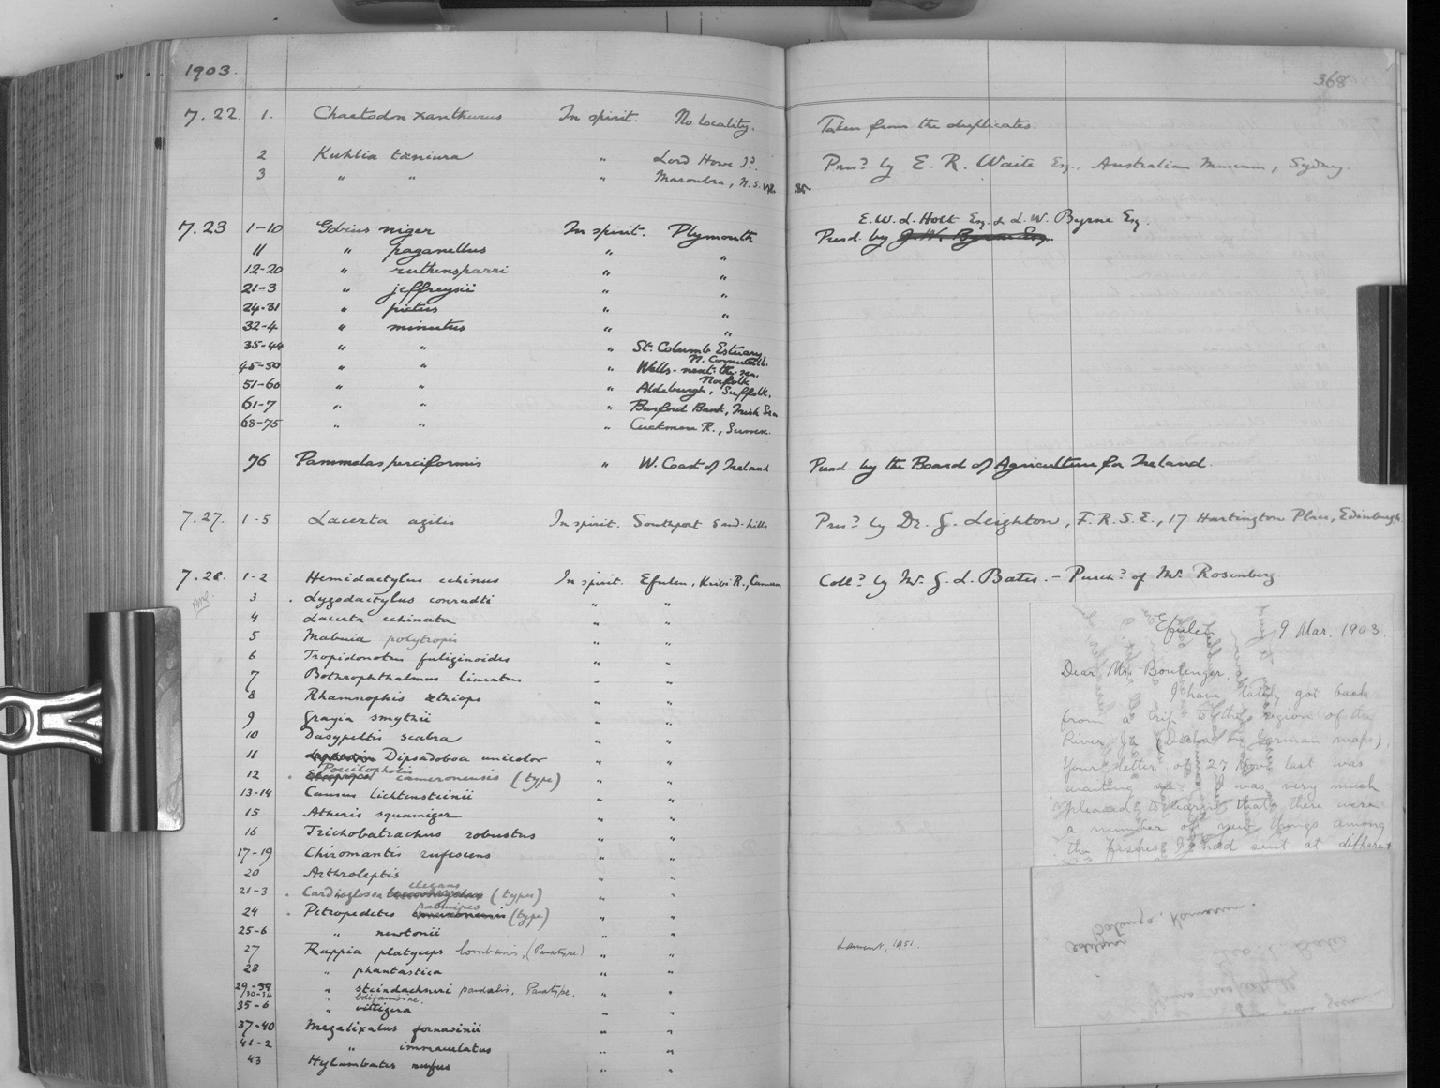 1903.
368
7.22 1. Chaetodon xanthurus In spirit. No locality. Taken from the duplicates
2 Kuhlia tæniura " Lord Howe Id. Presd by E. R. Waite Esq., Australian Museum, Sydney.
3 " " " Maroubra, N.S.W.
E.W.L. Holt Esq. & L.W. Byrne Esq.
7.23 1-10 Gobius niger In spirit. Plymouth Presd. by L. W. Byrne Esq.
11 " paganellus " "
12-20 " ruthensparri " "
21-3 " jeffreysii " "
24-31 " pictus " "
32-4 " minutus " "
35-44 " " " St. Columb Estuary
N. Cornwall.
45-50 " " Wells-next-the-sea.
Norfolk
51-60 " " " Aldeburgh, Suffolk.
61-7 " " " Burford Bank, Irish Sea
68-75 " " " Cuckmere R., Sussex.
76 Pammelas perciformis " W. Coast of Ireland Presd by the Board of Agriculture for Ireland.
7.27. 1-5 Lacerta agilis In spirit. Southport Sand-hills Presd by Dr. G. Leighton, F.R.S.E., 17 Hartington Place, Edinburgh
7.28. 1-2 Hemidactylus echinus In spirit. Efulen, Kribi R., Cameroon Colld by Mr. G. L. Bates. - Purchd of Mr. Rosenberg
3 Lygodactylus conradti " "
4 Lacerta echinata " "
5 Mabuia polytropis " "
6 Tropidonotus fuliginoides " "
7 Bothrophthalmus lineatus " "
8 Rhamnophis æthiops " "
9 Grayia smythii " "
10 Dasypeltis scabra " "
11 Dipsadoboa unicolor " "
Poecilopholis
12 cameronensis (type) " "
13-14 Causus lichtensteinii " "
15 Atheris squamiger " "
16 Trichobatrachus robustus " "
17-19 Chiromantis rufescens " "
20 Arthroleptis " "
elegans
21-3 Cardioglossa (types) " "
24 Petropedetes (type) " "
25-6 " newtonii " "
27 Rappia platyceps (Paratype) " " Laurent, 1951.
28 " phantastica " "
29-39 " steindachneri pardalis, Paratype. " "
35-6 " vittigera " "
37-40 Megalixalus fornasinii " "
41-2 " immaculatus " "
43 Hylambates rufus " "
Efulen, 9 Mar. 1903.
Dear Mr. Boulenger,
I have lately got back
from a trip to the region of the
River Ja (Dscha in German maps),
Your letter of 27 Nov. last was
waiting me. I was very much
pleased to learn that there were
a number of new things among
the fishes I had sent at different